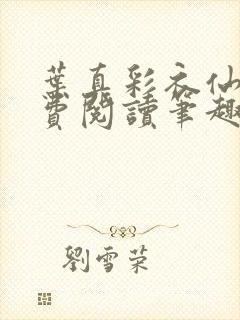 葉真彩衣仙
費閱讀筆趣
劉雪荣